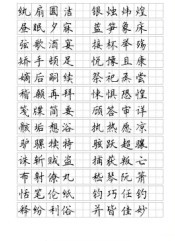 纨 扇 圆 洁 银 烛 炜 煌
昼 眠 夕 寐 蓝 笋 象 床
弦 歌 酒 宴 接 杯 举 殇
矫 手 顿 足 悦 豫 且 康
嫡 后 嗣 续 祭 祀 烝 尝
稽 颡 再 拜 悚 惧 恐 惶
笺 牒 简 要 顾 答 审 详
骸 垢 想 浴 执 热 愿 凉
驴 骡 犊 特 骇 跃 超 骧
诛 斩 贼 盗 捕 获 叛 亡
布 射 僚 丸 嵇 琴 阮 箫
恬 笔 伦 纸 钧 巧 任 钓
释 纷 利 俗 并 皆 佳 妙